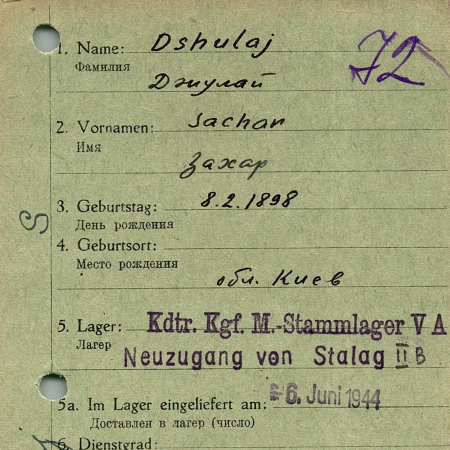 1. Name: Dshulaj
Фамилия
72
Джулай
2. Vornamen: Sachar
Имя
Захар
S
3. Geburtstag: 8.2.1898
День рождения
4. Geburtsort:
Место рождения
обл. Киев
5. Lager: Kdtr. Kgf. M.-Stammlager V A
Лагерь
Neuzugang von Stalag II B
5a. Im Lager eingeliefert am: 6. Juni 1944
Доставлен в лагерь (число)
6. Dienstgrad: